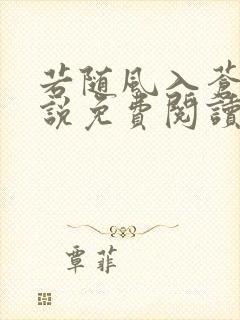 若随風入蒼
説免費閱讀
覃菲